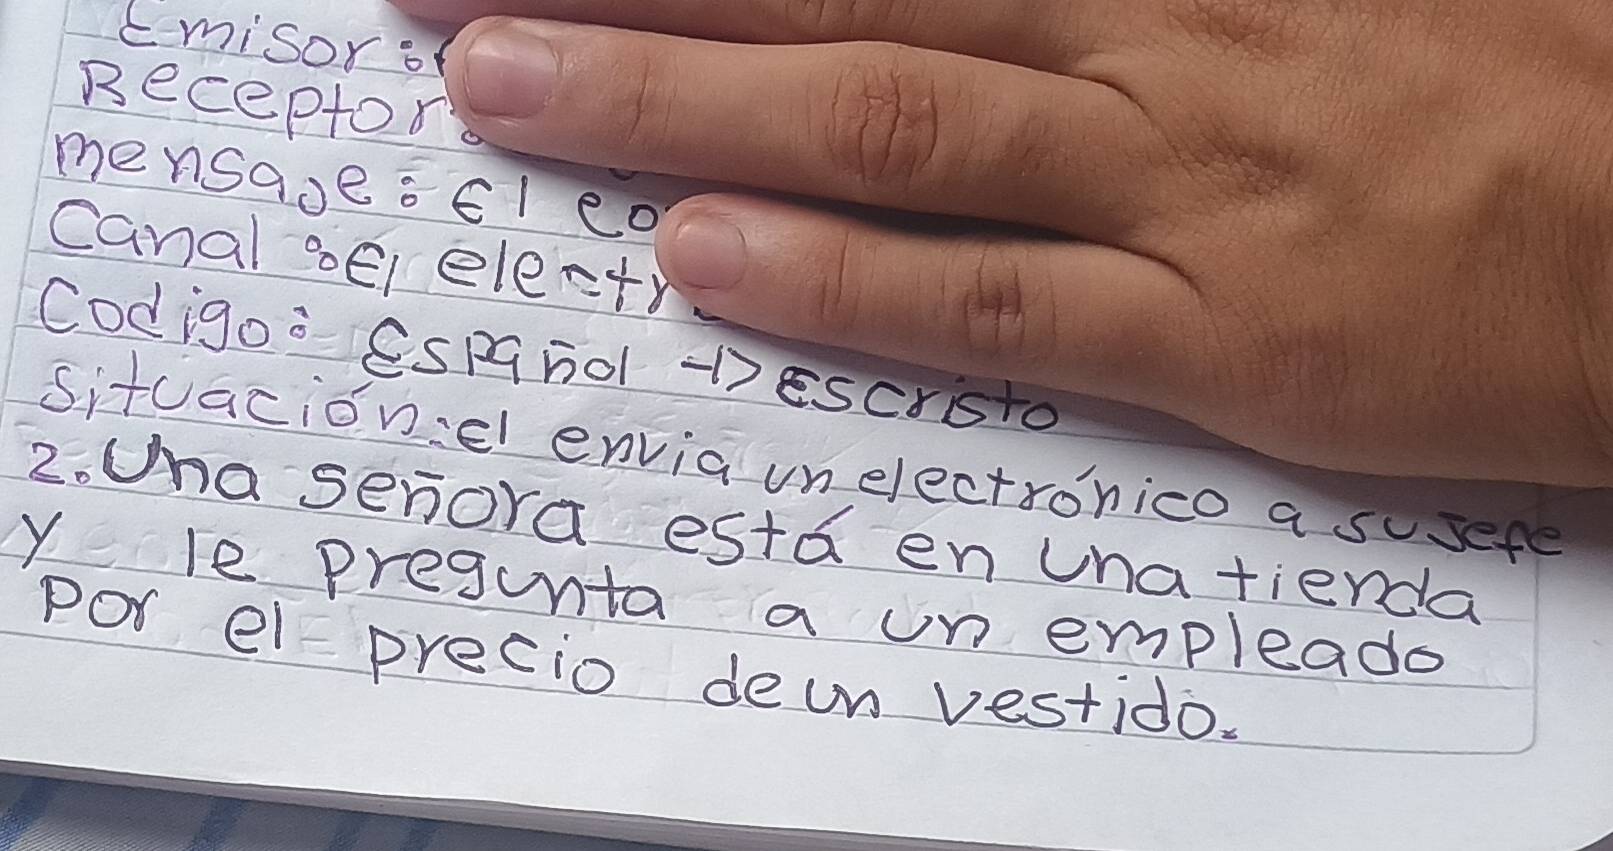 Emisor:
Receptor:
mensaje: El co
Canal: El electr
Codigo: Español -> Escristo
Situación: el envia un electrónico a su Jefe
2. Una señora está en una tienda
y le pregunta a un empleado
por el precio de un vestido.